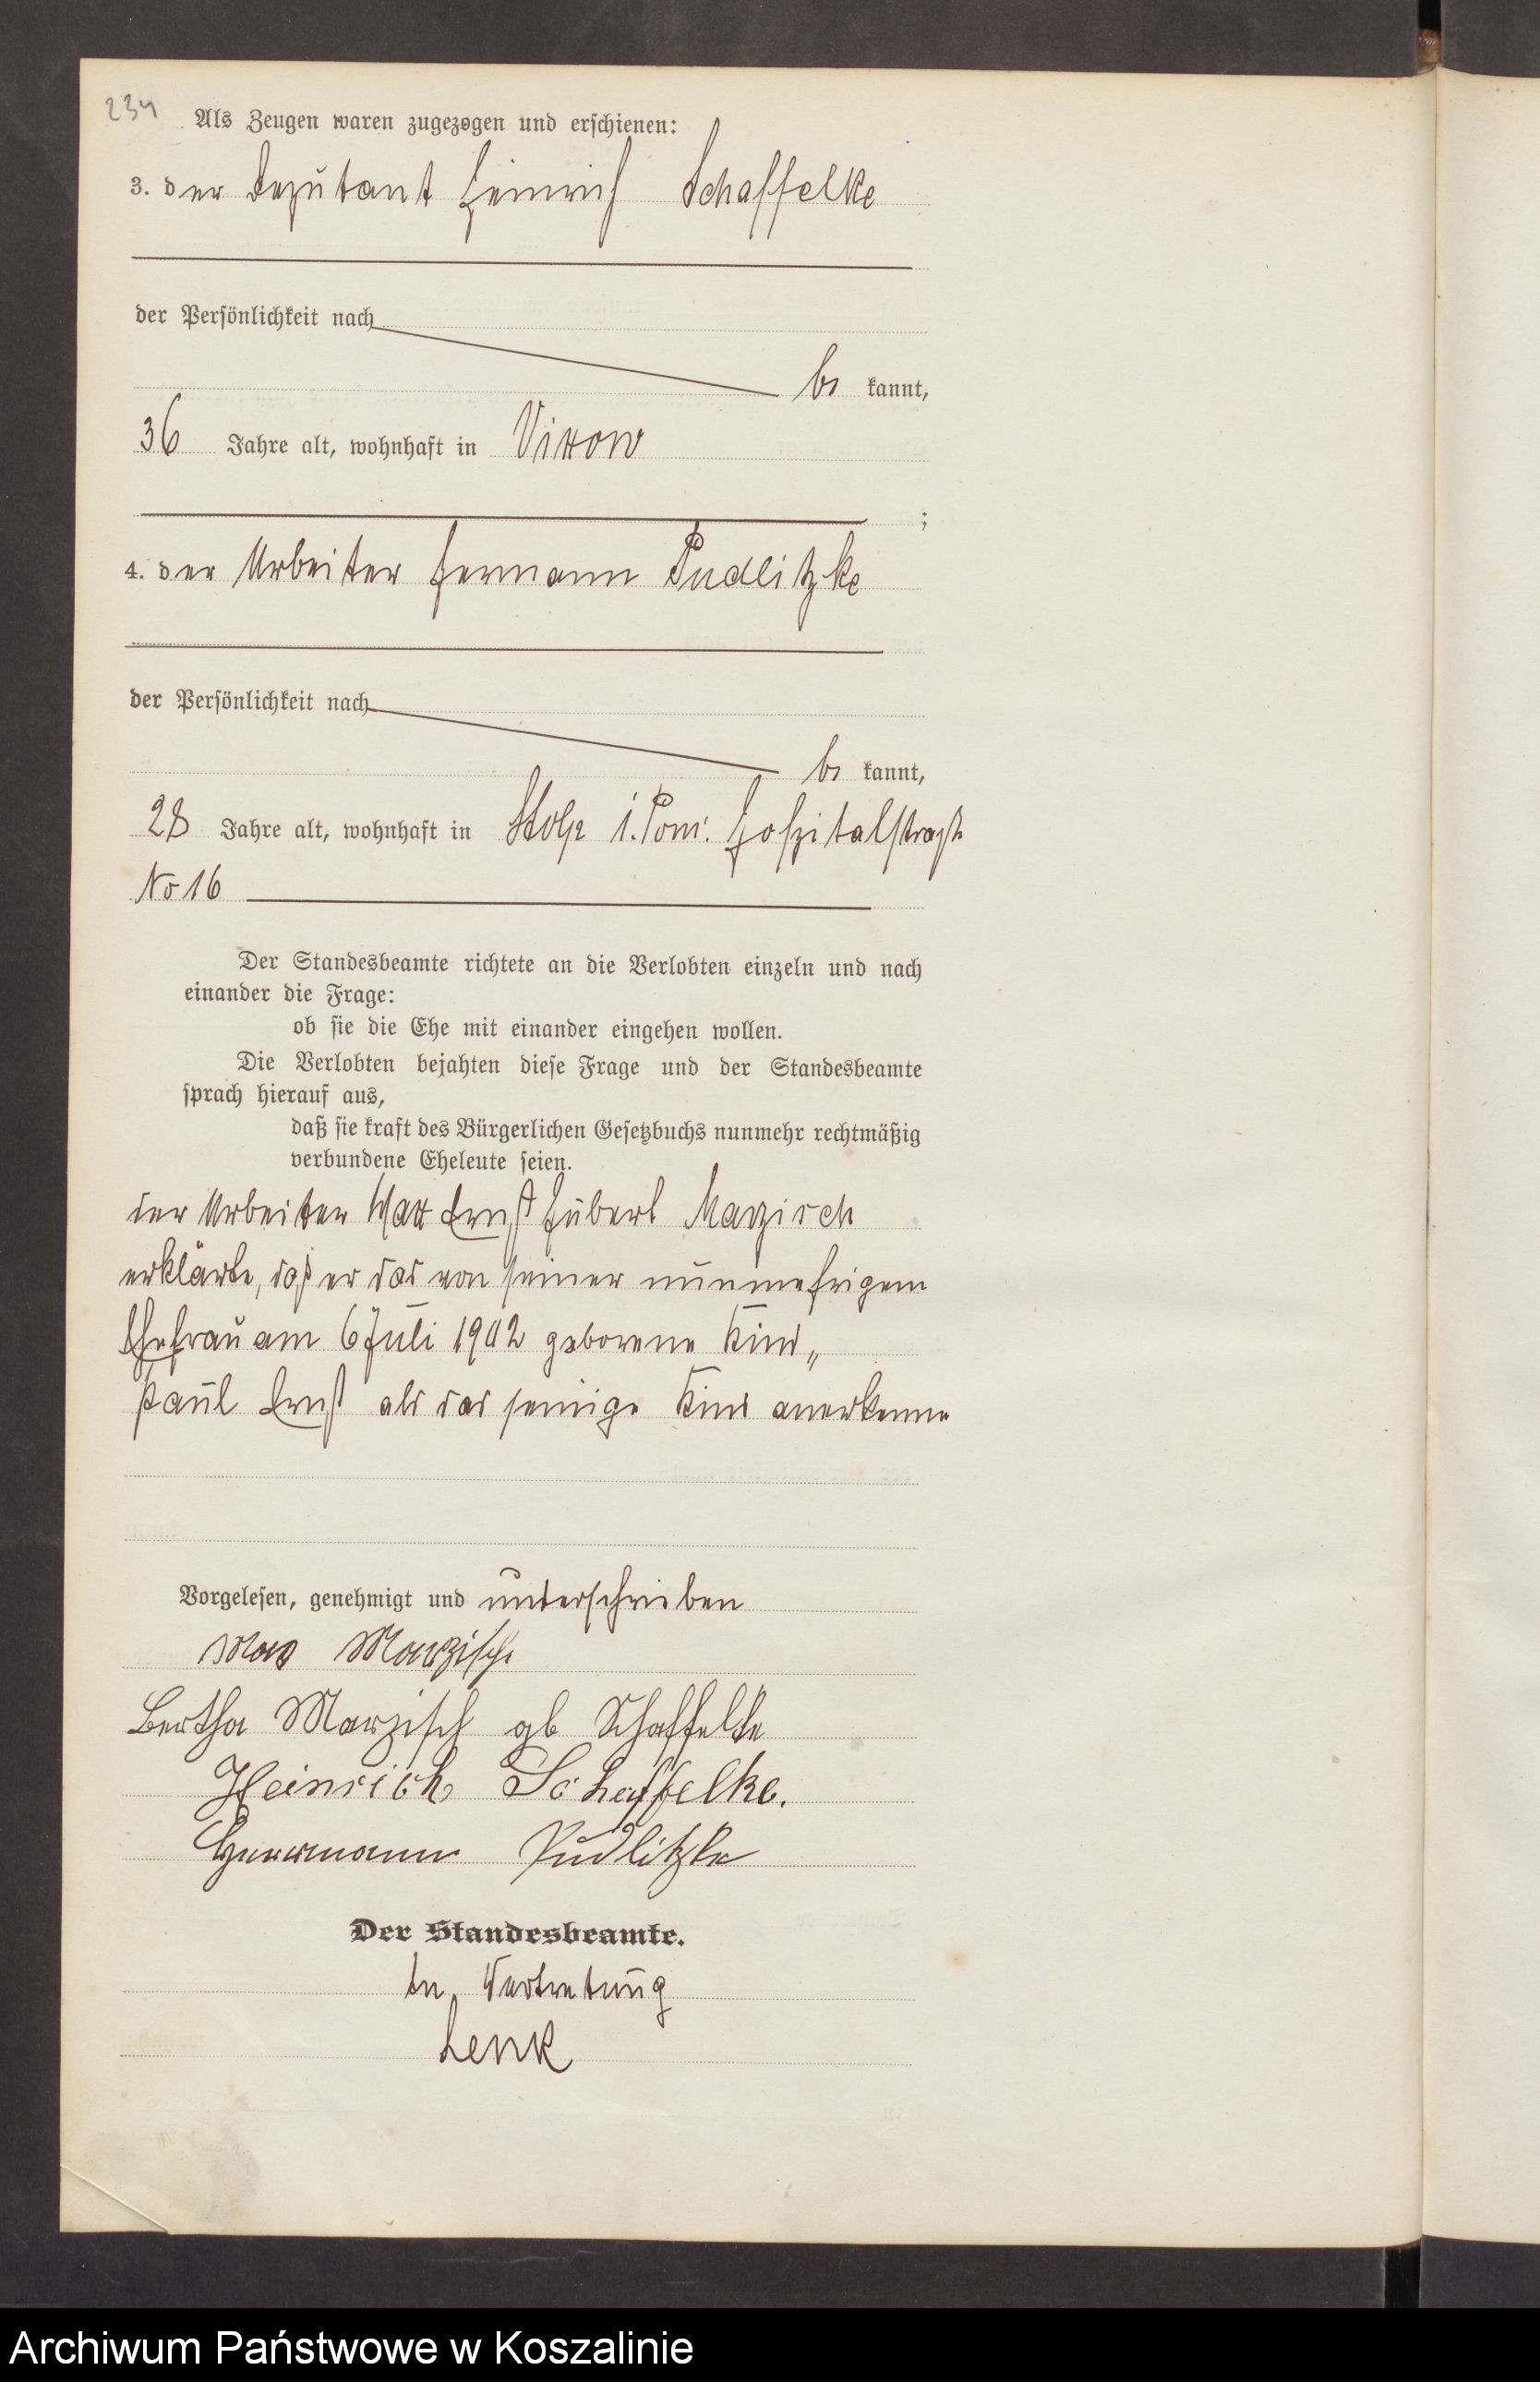 234
Als Zeugen waren zugezogen und erschienen:
3. der Deputant Heinrich Schaffelke
der Persönlichkeit nach
be kannt,
36 Jahre alt, wohnhaft in Vixow
;
4. der Arbeiter Hermann Pudlitzke
der Persönlichkeit nach
be kannt,
28 Jahre alt, wohnhaft in Stolp i. Pom. Hospitalstraße
No 16
Der Standesbeamte richtete an die Verlobten einzeln und nach
einander die Frage:
ob sie die Ehe mit einander eingehen wollen.
Die Verlobten bejahten diese Frage und der Standesbeamte
sprach hierauf aus,
daß sie kraft des Bürgerlichen Gesetzbuchs nunmehr rechtmäßig
verbundene Eheleute seien.
der Arbeiter Max Ernst Hubert Marzisch
erklärte, daß er das von seiner nunmehrigem
Ehefrau am 6 Juli 1902 geborene Kind „
Paul Ernst als das seinige Kind anerkenne
Vorgelesen, genehmigt und unterschrieben
Max Marzisch
Bertha Marzisch gb Schaffelke
Heinrich Schaffelke.
Herrmann Pudlitzke
Der Standesbeamte.
In Vertretung
Lenk
Archiwum Państwowe w Koszalinie